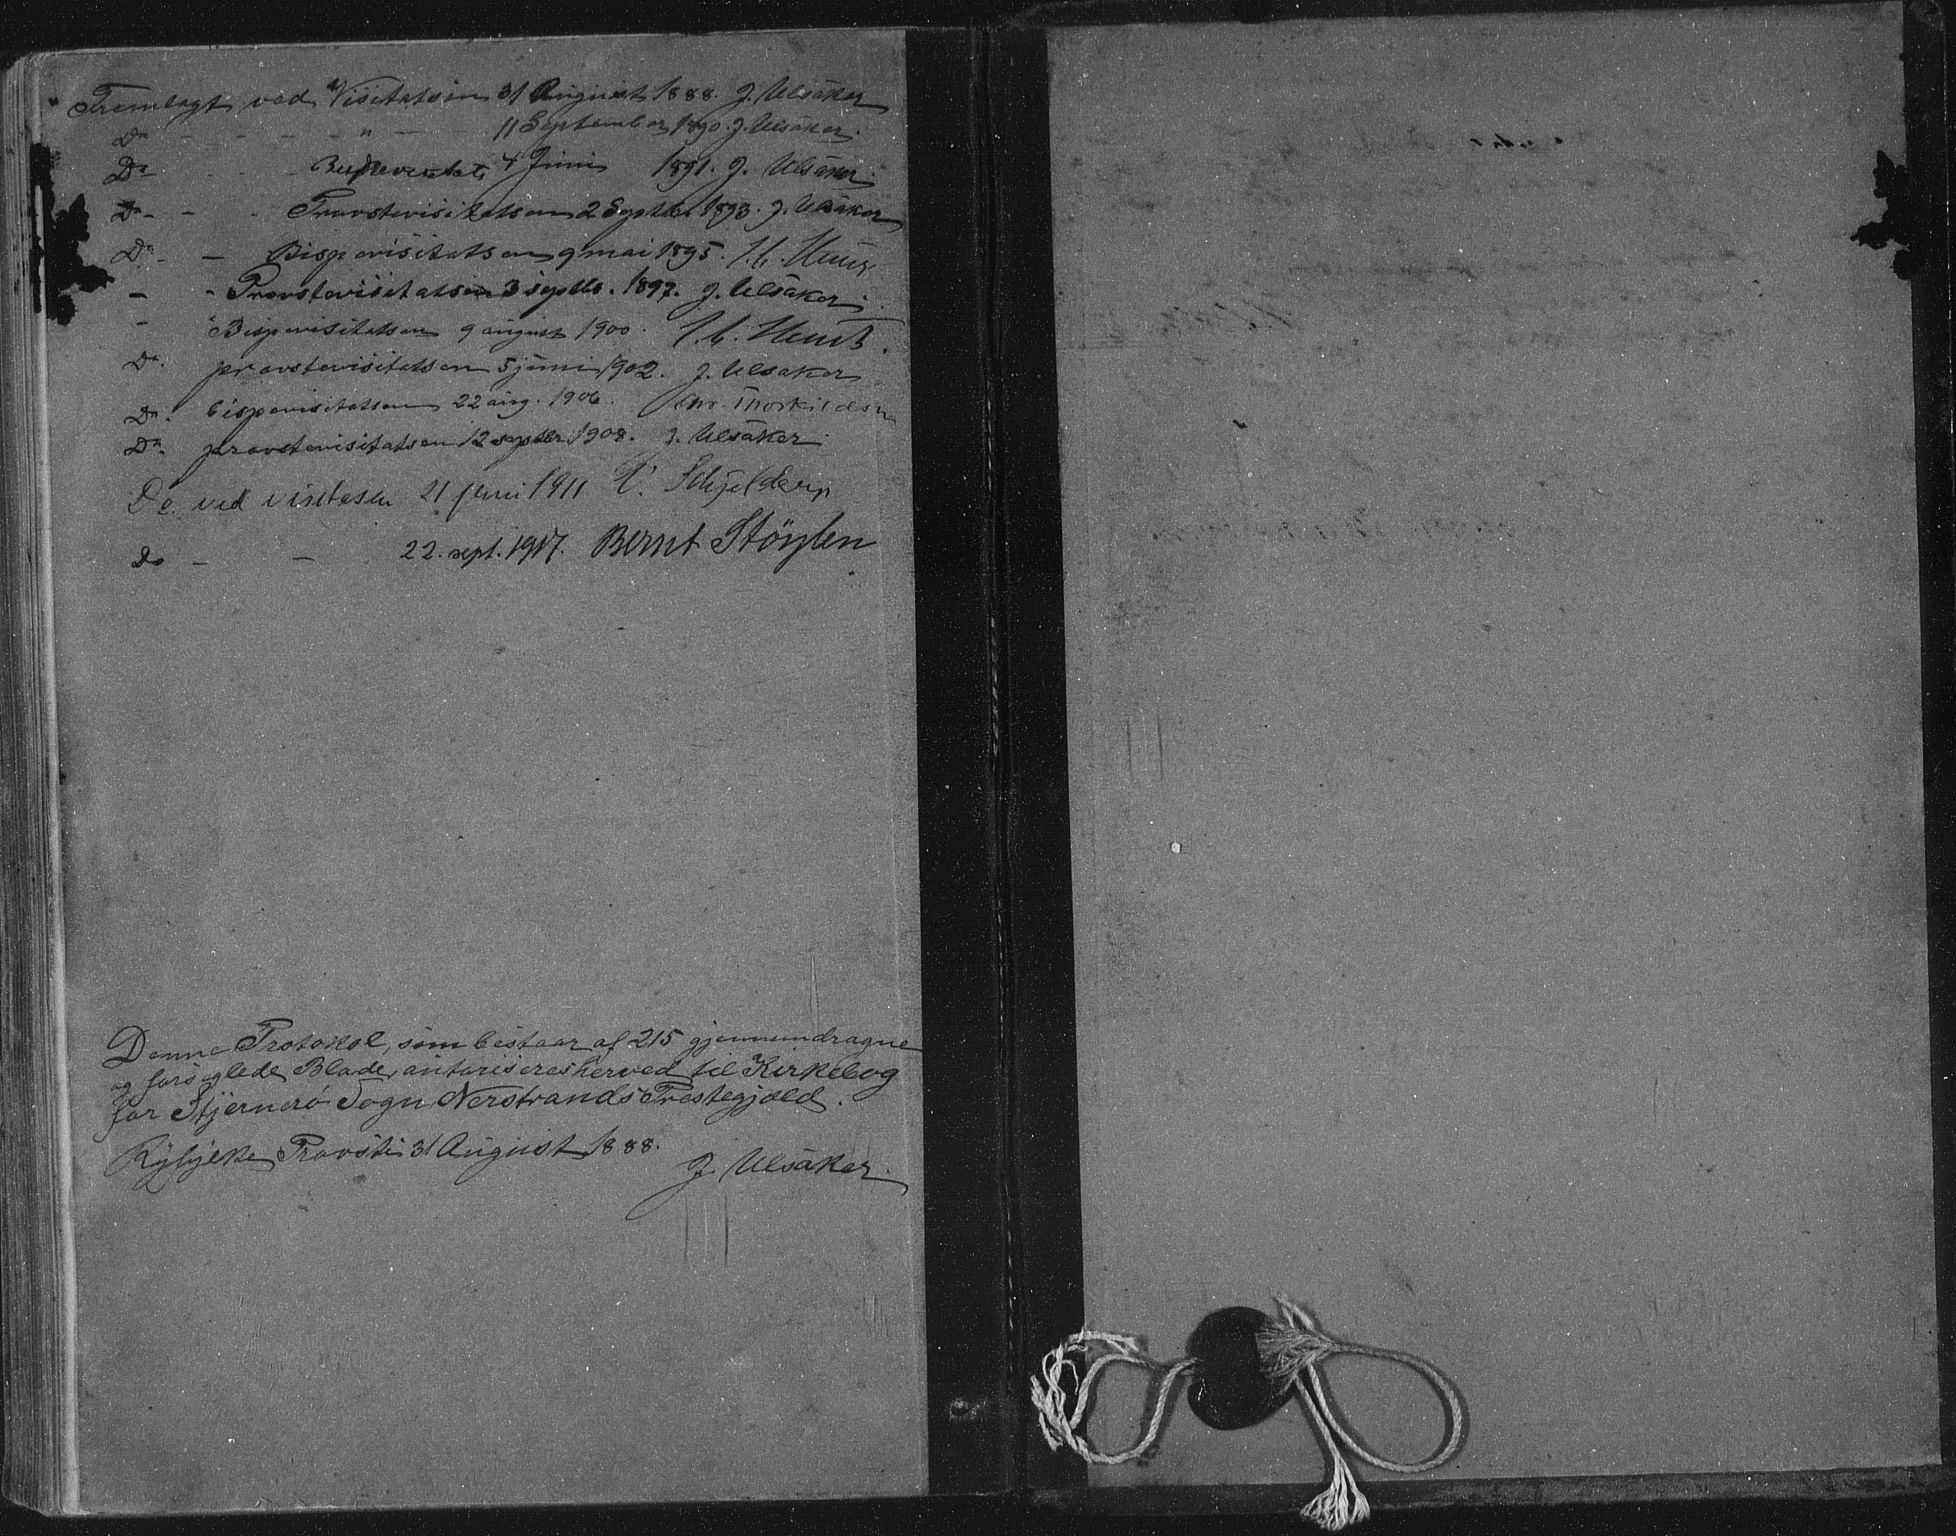 Fremlagt ved Visitatsen 31 August 1888. J. Ulsåker
Do - - - - " - - 11 September 1890. J. Ulsåker.
Do - - - 4 Juni 1891. J. Ulsåker.
Do - - - Provstevisitatsen 2 Septbr 1893. J. Ulsåker
Do - - Bispevisitatsen 9 mai 1895.
- - Provstevisitatsen 3 septbr. 1897. J. Ulsåker.
- " Bispevisitatsen 9 august 1900.
Do. provstevisitatsen 5 juni 1902. J. Ulsåker
Do. bispevisitatsen 22 aug. 1906. Chr. Thorkildsen
Do. provstevisitatsen 12 septbr 1908. J. Ulsåker.
Do. ved visitasen 21 juni 1911 Schjelderp
Do - - 22. sept. 1917. Bernt Støylen
Denne Protokol, som bestaar af 215 gjennemdragne
og forseglede Blade, autoriseres herved til Kirkebog
for Stjernerö Sogn, Nerstrands Prestegjæld.
Ryfylke Provsti 31 August 1888.
J. Ulsåker.